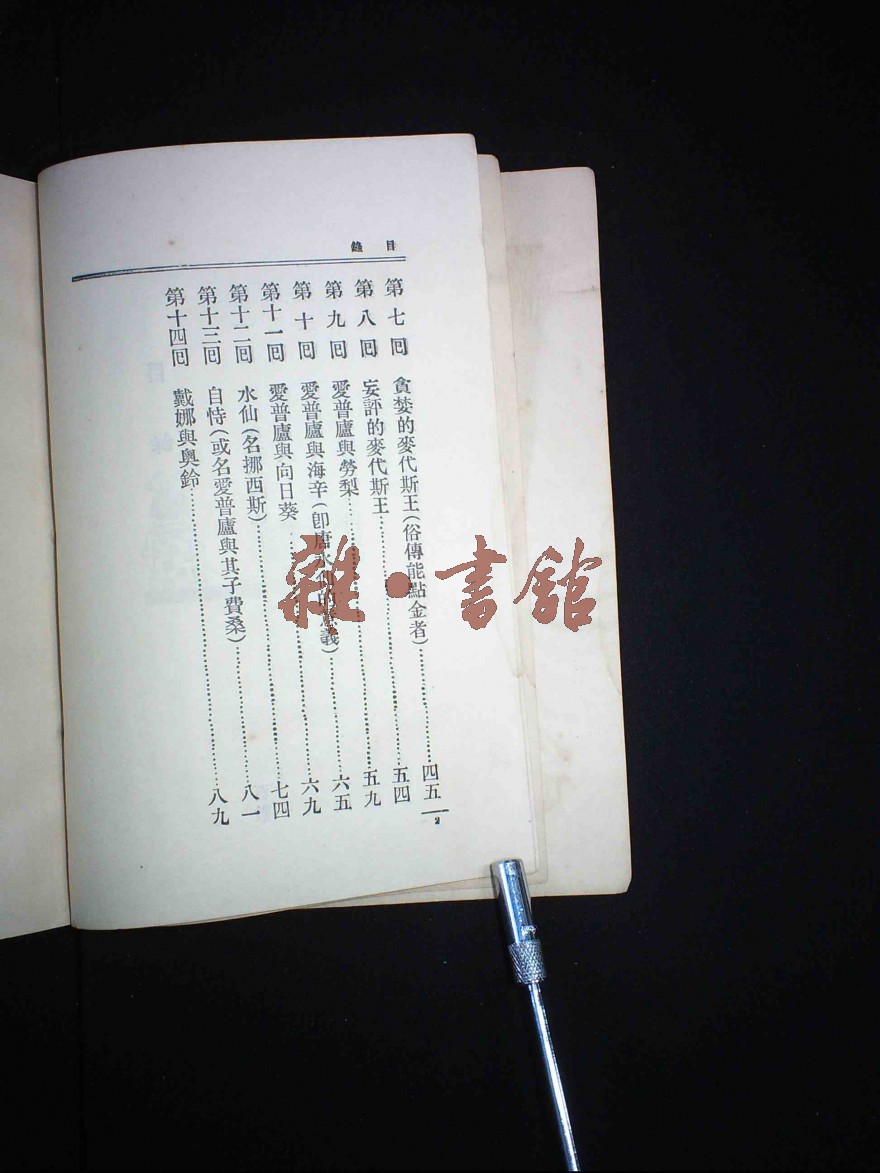 目錄
第七囘 貪婪的麥代斯王(俗傳能點金者)……四五
第八囘 妄評的麥代斯王……五四
第九囘 愛普廬與勞梨……五九
第十囘 愛普廬與海辛(卽唐水仙的義)……六五
第十一囘 愛普廬與向日葵……六九
第十二囘 水仙(名挪西斯)……七四
第十三囘 自恃(或名愛普廬與其子費桑)……八一
第十四囘 戴娜與奧鈴……八九
2
雜·書館